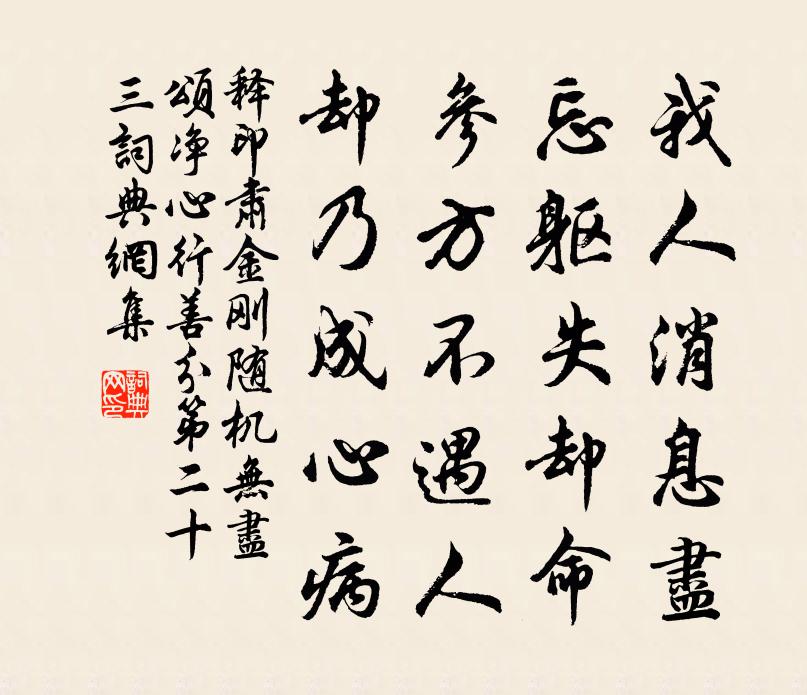 我人消息盡
忘軀失却命
參方不遇人
却乃成心病
释印肅金刚随机無盡
頌净心行善分第二十
三詞典網集
詞典
网印